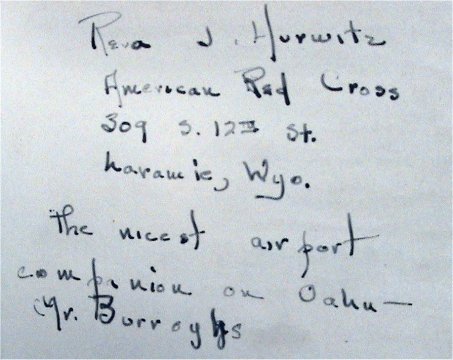 Reva J. Hurwitz
American Red Cross
309 S. 12th St.
Laramie, Wyo.
The nicest airport
companion on Oahu—
Mr. Burroughs